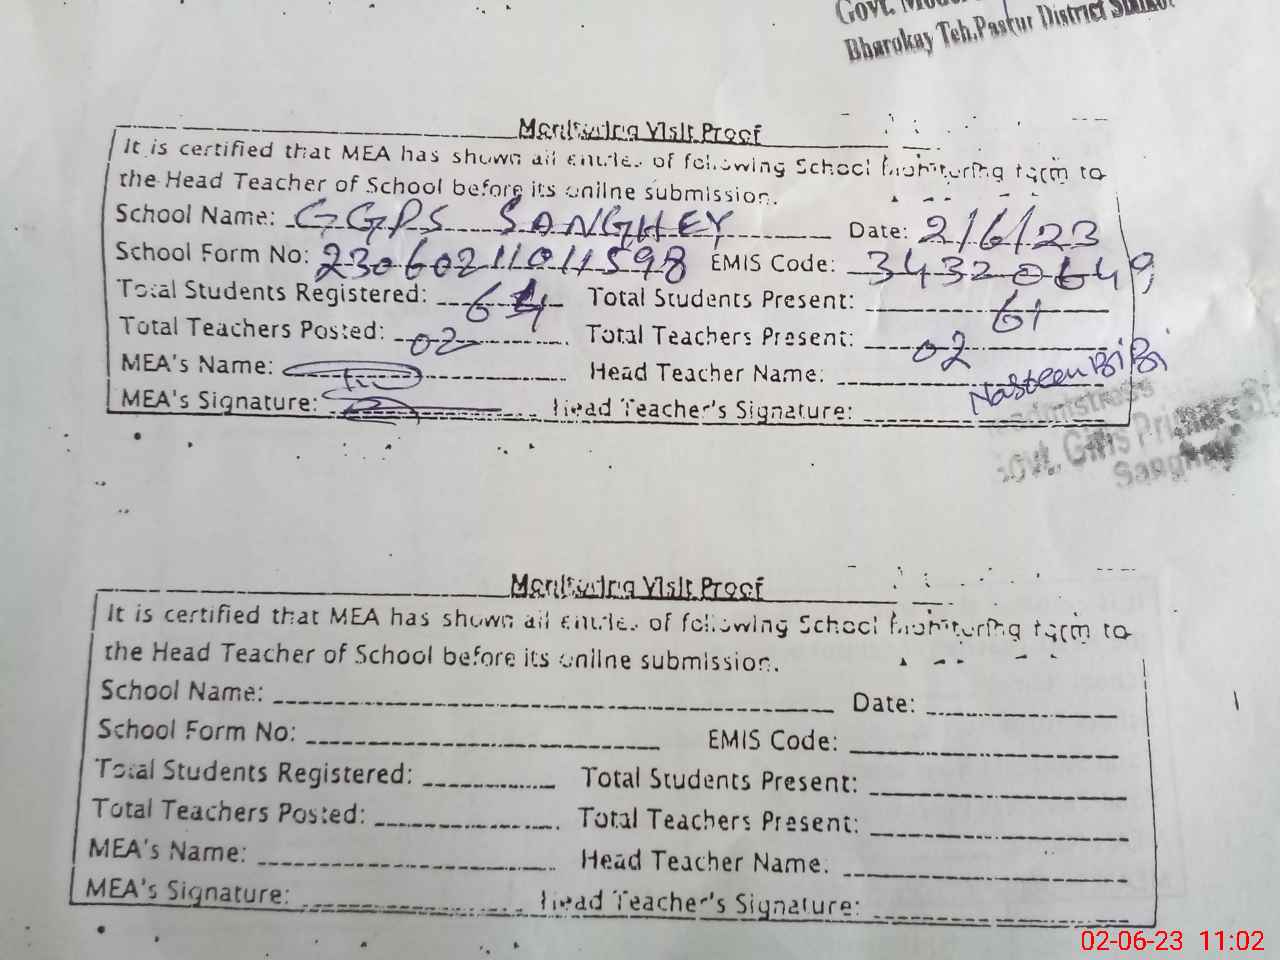 Govt. Model
Bharokay Teh.Pasrur District Sialkot
Monitoring Visit Proof
It is certified that MEA has shown all entries of following School Monitoring form to
the Head Teacher of School before its online submission.
School Name: GGPS SANGHEY Date: 2/6/23
School Form No: 2306021101598 EMIS Code: 34320649
Total Students Registered: 64 Total Students Present: 61
Total Teachers Posted: 02 Total Teachers Present: 02
MEA's Name: Head Teacher Name: Nasreen BiBi
MEA's Signature: Head Teacher's Signature:
Headmistress
Govt. Girls Primary
Sanghey
Monitoring Visit Proof
It is certified that MEA has shown all entries of following School Monitoring form to
the Head Teacher of School before its online submission.
School Name: Date:
School Form No: EMIS Code:
Total Students Registered: Total Students Present:
Total Teachers Posted: Total Teachers Present:
MEA's Name: Head Teacher Name:
MEA's Signature: Head Teacher's Signature:
02-06-23 11:02